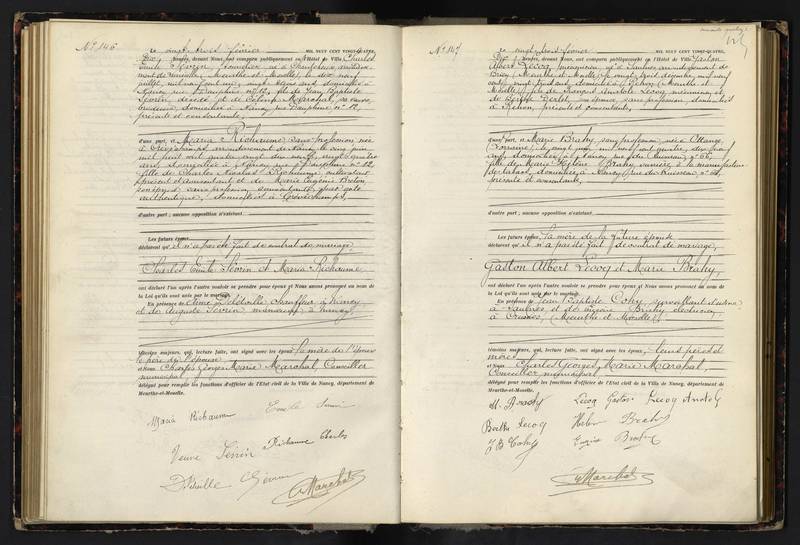 N° 146
Le vingt trois février MIL NEUF CENT VINGT-QUATRE,
heures, devant Nous, ont comparu publiquement en l'Hôtel de Ville Charles
Emile Sevrin
ment de Meurthe et Moselle, le dix neuf
Nancy, rue Dauphine n° 12, fils de Jean Baptiste
Sevrin, décédé et de Marchal, sa veuve,
domiciliée à Nancy, rue Dauphine n° 12,
présente et consentante,
d'une part, et Maria Richaume sans profession, née
à arrondissement de Nancy, le cinq juin
mil huit cent quatre vingt dix neuf, vingt quatre
ans, domiciliée à Nancy, rue Dauphine n° 12,
fille de Charles Nicolas Richaume cultivateur
présent et consentant et de Marie Eugénie Breton
sans profession, consentante
authentique, domiciliés à
d'autre part ; aucune opposition n'existant
Les futurs époux
déclarent qu'il n'a pas été fait de contrat de mariage.
Charles Emile Sevrin et Maria Richaume
ont déclaré l'un après l'autre vouloir se prendre pour époux et Nous avons prononcé au nom de
la Loi qu'ils sont unis par le mariage.
En présence de chauffeur à Nancy
et de Auguste Sevrin à Nancy,
témoins majeurs, qui, lecture faite, ont signé avec les époux, la mère de l'époux
le père de l'épouse
et Nous Charles Georges Marie Marchal, Conseiller
municipal
délégué pour remplir les fonctions d'officier de l'Etat civil de la Ville de Nancy, département de
Meurthe-et-Moselle.
Maria Richaume Emile Sevrin
Veuve Sevrin Richaume Charles
Sevrin
Marchal
N° 147
Le vingt trois février MIL NEUF CENT VINGT-QUATRE,
heures, devant Nous, ont comparu publiquement en l'Hôtel de Ville Gaston
Albert Lecoq, né à Saulnes arrondissement de
Briey (Meurthe et Moselle) le vingt trois décembre mil neuf
cent, vingt trois ans, domicilié à Réhon (Meurthe et
Moselle) fils de François Anatole Lecoq
et de Berthe son épouse, sans profession, domiciliés
à Réhon, présents et consentants,
d'une part, et Marie Brahy, sans profession, née à Ottange
(Lorraine) le vingt mai mil neuf cent quatre, dix neuf
ans, domiciliée à Nancy, rue du Ruisseau, n° 66,
fille de Marie Hélène Brahy, ouvrière à la manufacture
de tabacs, domiciliée à Nancy, rue du Ruisseau, n° 66,
présente et consentante,
d'autre part ; aucune opposition n'existant
Les futurs époux, la mère de la future épouse
déclarent qu'il n'a pas été fait de contrat de mariage,
Gaston Albert Lecoq et Marie Brahy,
ont déclaré l'un après l'autre vouloir se prendre pour époux et Nous avons prononcé au nom de
la Loi qu'ils sont unis par le mariage.
En présence de Jean Baptiste Cohy, surveillant d'usine
à Saulnes et de Eugène Brahy électricien
à Crusnes, (Meurthe et Moselle)
témoins majeurs, qui, lecture faite, ont signé avec les époux, leurs père et
mères
et Nous Charles Georges Marie Marchal,
Conseiller municipal
délégué pour remplir les fonctions d'officier de l'Etat civil de la Ville de Nancy, département de
Meurthe-et-Moselle.
M. Brahy Lecoq Gaston Lecoq Anatole
Berthe Lecoq Hélène Brahy
J B Cohy Eugène Brahy
Marchal